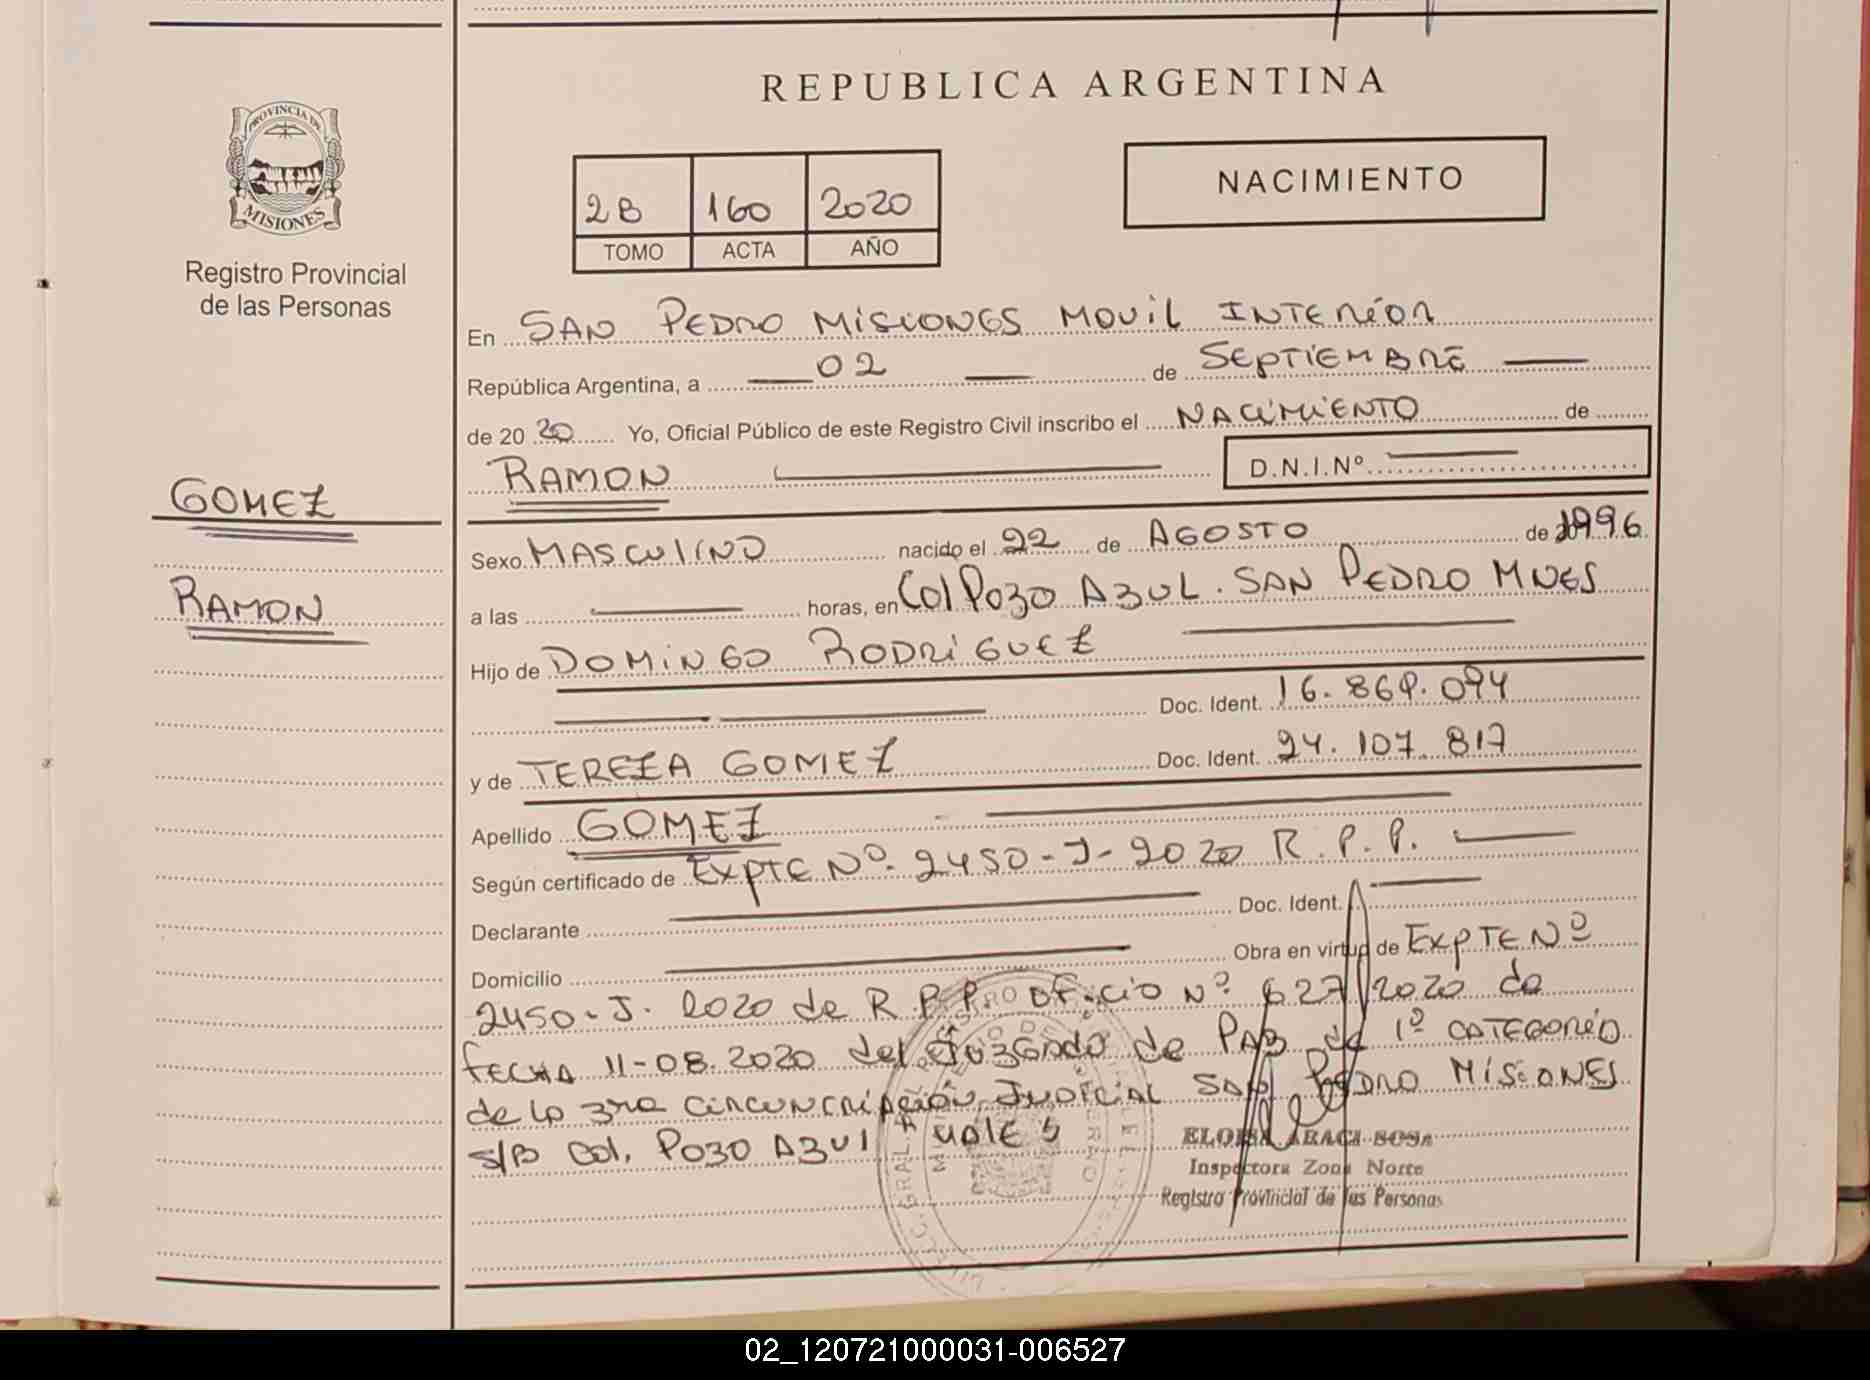 REPUBLICA ARGENTINA
PROVINCIA DE
MISIONES
Registro Provincial
de las Personas
NACIMIENTO
2B 160 2020
TOMO ACTA AÑO
En SAN PEDRO MISIONES MOVIL INTERIOR
República Argentina, a 02 de SEPTIEMBRE
de 20 20 Yo, Oficial Público de este Registro Civil inscribo el NACIMIENTO de
RAMON D.N.I.Nº
GOMEZ
RAMON
Sexo MASCULINO nacido el 22 de AGOSTO de 1996
a las horas, en Col POZO AZUL. SAN PEDRO MNES
Hijo de DOMINGO RODRIGUEZ
Doc. Ident. 16.869.094
y de TEREZA GOMEZ Doc. Ident. 24.107.817
Apellido GOMEZ
Según certificado de EXPTE Nº. 2450-J-2020 R.P.P.
Declarante Doc. Ident.
Domicilio Obra en virtud de EXPTE Nº
2450-J-2020 de R.P.P. oficio Nº 627/2020 de
FECHA 11-08.2020 del Juzgado de PAZ de 1º CATEGORIA
de la 3ra CIRCUNCRIPCION JUDICIAL SAN PEDRO MISIONES
S/B Col. POZO AZUL VALE
ELOISA ARACI SOSA
Inspectora Zona Norte
Registro Provincial de las Personas
02_120721000031-006527